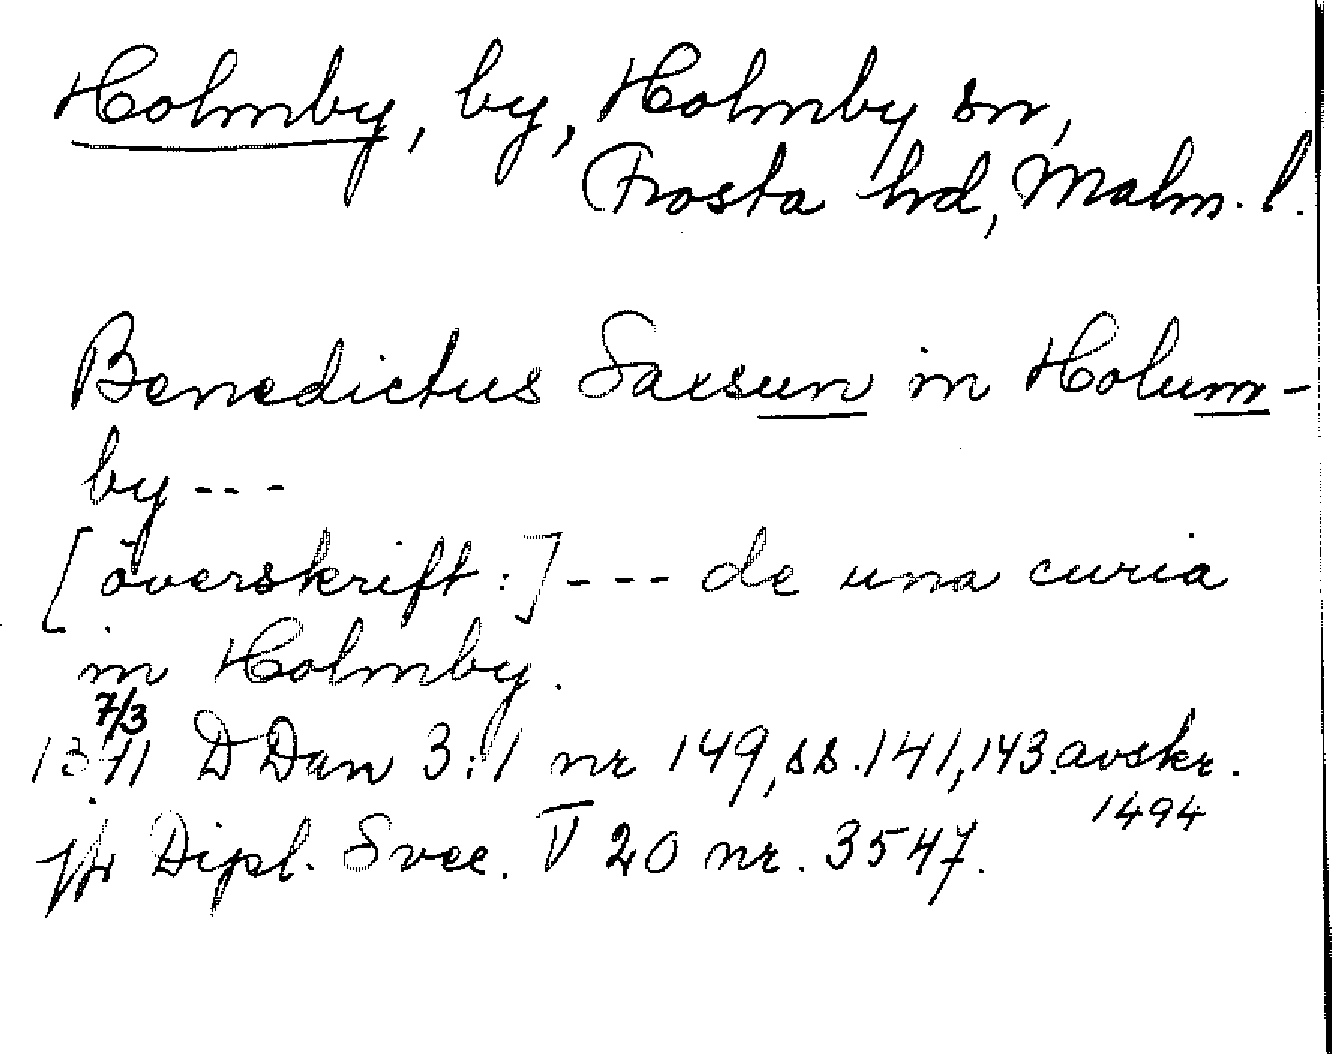 Holmby, by, Holmby sn,
Frosta hd, Malm. l.
Benedictus Saxsun in Holum-
by ---
[överskrift:] --- de una curia
in Holmby.
7/3
1341 DDan 3:1 nr 149, ss. 141, 143. avskr.
1494
jfr Dipl. Svec. V 20 nr. 3547.